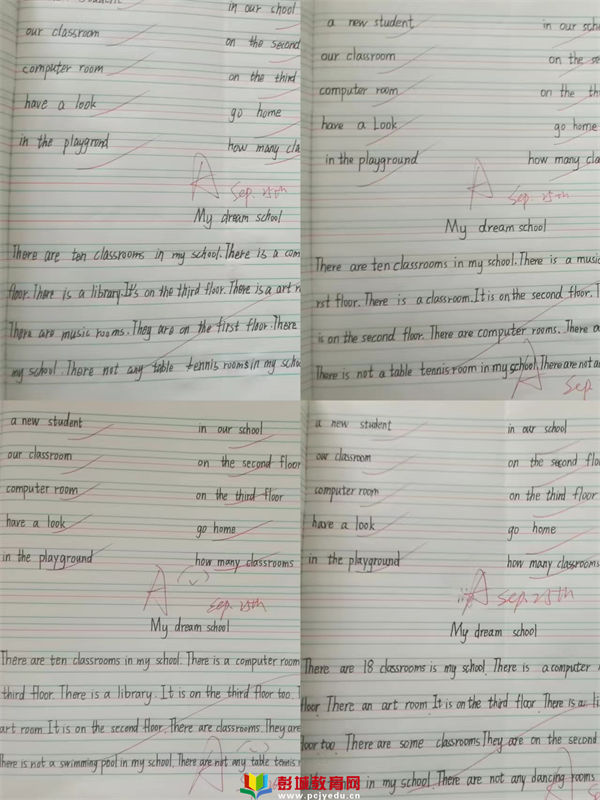 student in our chool
our classroom on the second
computer room on the third
have a look go home
in the playgrond how many cla
A Sep. 25th
My dream school
There are ten classrooms in my school. There is a com
floor. There is a library. It's on the third floor. There is a art r
There are music rooms. They are on the first floor. There
my school. There not any table tennis rooms in my scho
a new student in our scho
our classroom on the se
computer room on the th
have a Look go home
in the playground how many cla
A Sep. 25th
My dream school
There are ten classrooms in my school. There is a music
rst floor. There is a classroom. It is on the second floor. T
is on the second floor. There are computer rooms. There a
There is not a table tennis room in my school. There are not a
A Sep
a new student in our school
our classroom on the second floor
computer room on the third floor
have a look go home
in the playground how many classrooms
A Sep. 25th
My dream school
There are ten classrooms in my school. There is a computer room
third floor. There is a library. It is on the third floor too. T
art room. It is on the second floor. There are classrooms. They are
There is not a swimming pool in my school. There are not any table tennis r
A
a new student in our school
our classroom on the second floo
computer room on the third floor
have a look go home
in the playground how many classrooms
A Sep. 25th
My dream school
There are 18 classrooms is my school. There is a computer r
floor. There an art room. It is on the third floor. There is a li
loor too. There are some classrooms. They are on the second
in my school. There are not any dancing rooms
彭城教育网
www.pcjyedu.cn